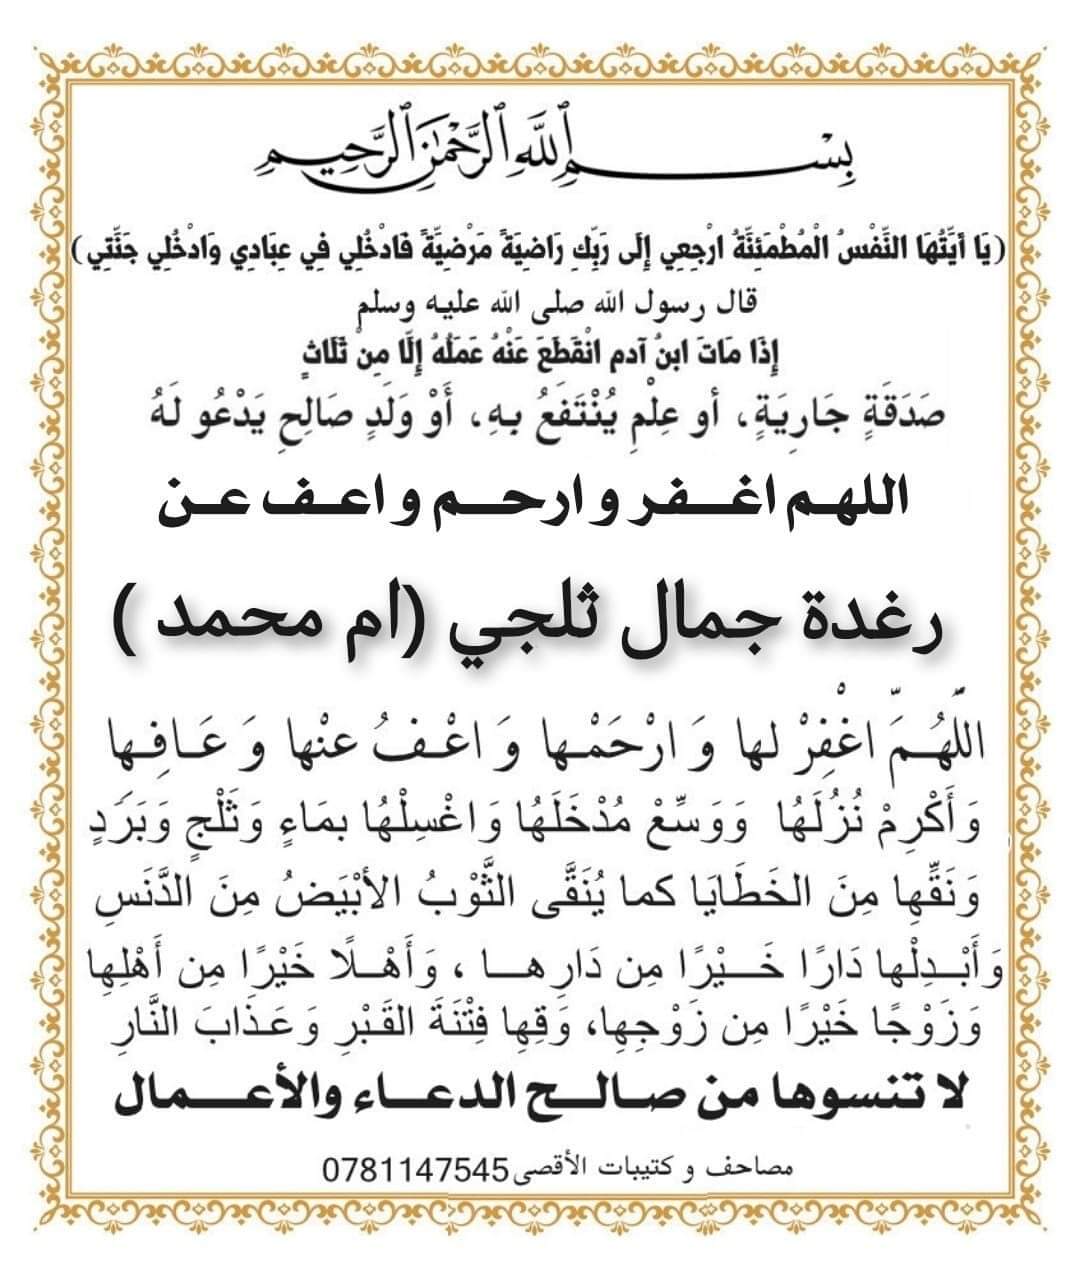 بِسْمِ اللَّهِ الرَّحْمَٰنِ الرَّحِيمِ
(يَا أَيَّتُهَا النَّفْسُ الْمُطْمَئِنَّةُ ارْجِعِي إِلَى رَبِّكِ رَاضِيَةً مَرْضِيَّةً فَادْخُلِي فِي عِبَادِي وَادْخُلِي جَنَّتِي)
قال رسول الله صلى الله عليه وسلم
إِذَا مَاتَ ابنُ آدم انْقَطَعَ عَنْهُ عَمَلُهُ إِلَّا مِنْ ثَلَاثٍ
صَدَقَةٍ جَارِيَةٍ، أو عِلْمٍ يُنْتَفَعُ بهِ، أَوْ وَلَدٍ صَالِحٍ يَدْعُو لَهُ
اللهم اغفر و ارحم و اعف عن
رغدة جمال ثلجي (ام محمد )
اللَّهُمَّ اغْفِرْ لها وَ ارْحَمْها وَ اعْفُ عنْها وَ عَافِها
وَأَكْرِمْ نُزُلَهَا وَوَسِّعْ مُدْخَلَهَا وَاغْسِلْهَا بمَاءٍ وَثَلْجٍ وَبَرَدٍ
وَنَقِّهِا مِنَ الخَطَايَا كما يُنَقَّى الثَّوْبُ الأبْيَضُ مِنَ الدَّنَسِ
وَأَبْدِلْها دَارًا خَيْرًا مِن دَارِها ، وَأَهْلًا خَيْرًا مِن أَهْلِها
وَزَوْجًا خَيْرًا مِن زَوْجِها، وَقِها فِتْنَةَ القَبْرِ وَعَذَابَ النَّارِ
لا تنسوها من صالح الدعاء والأعمال
مصاحف و كتيبات الأقصى 0781147545